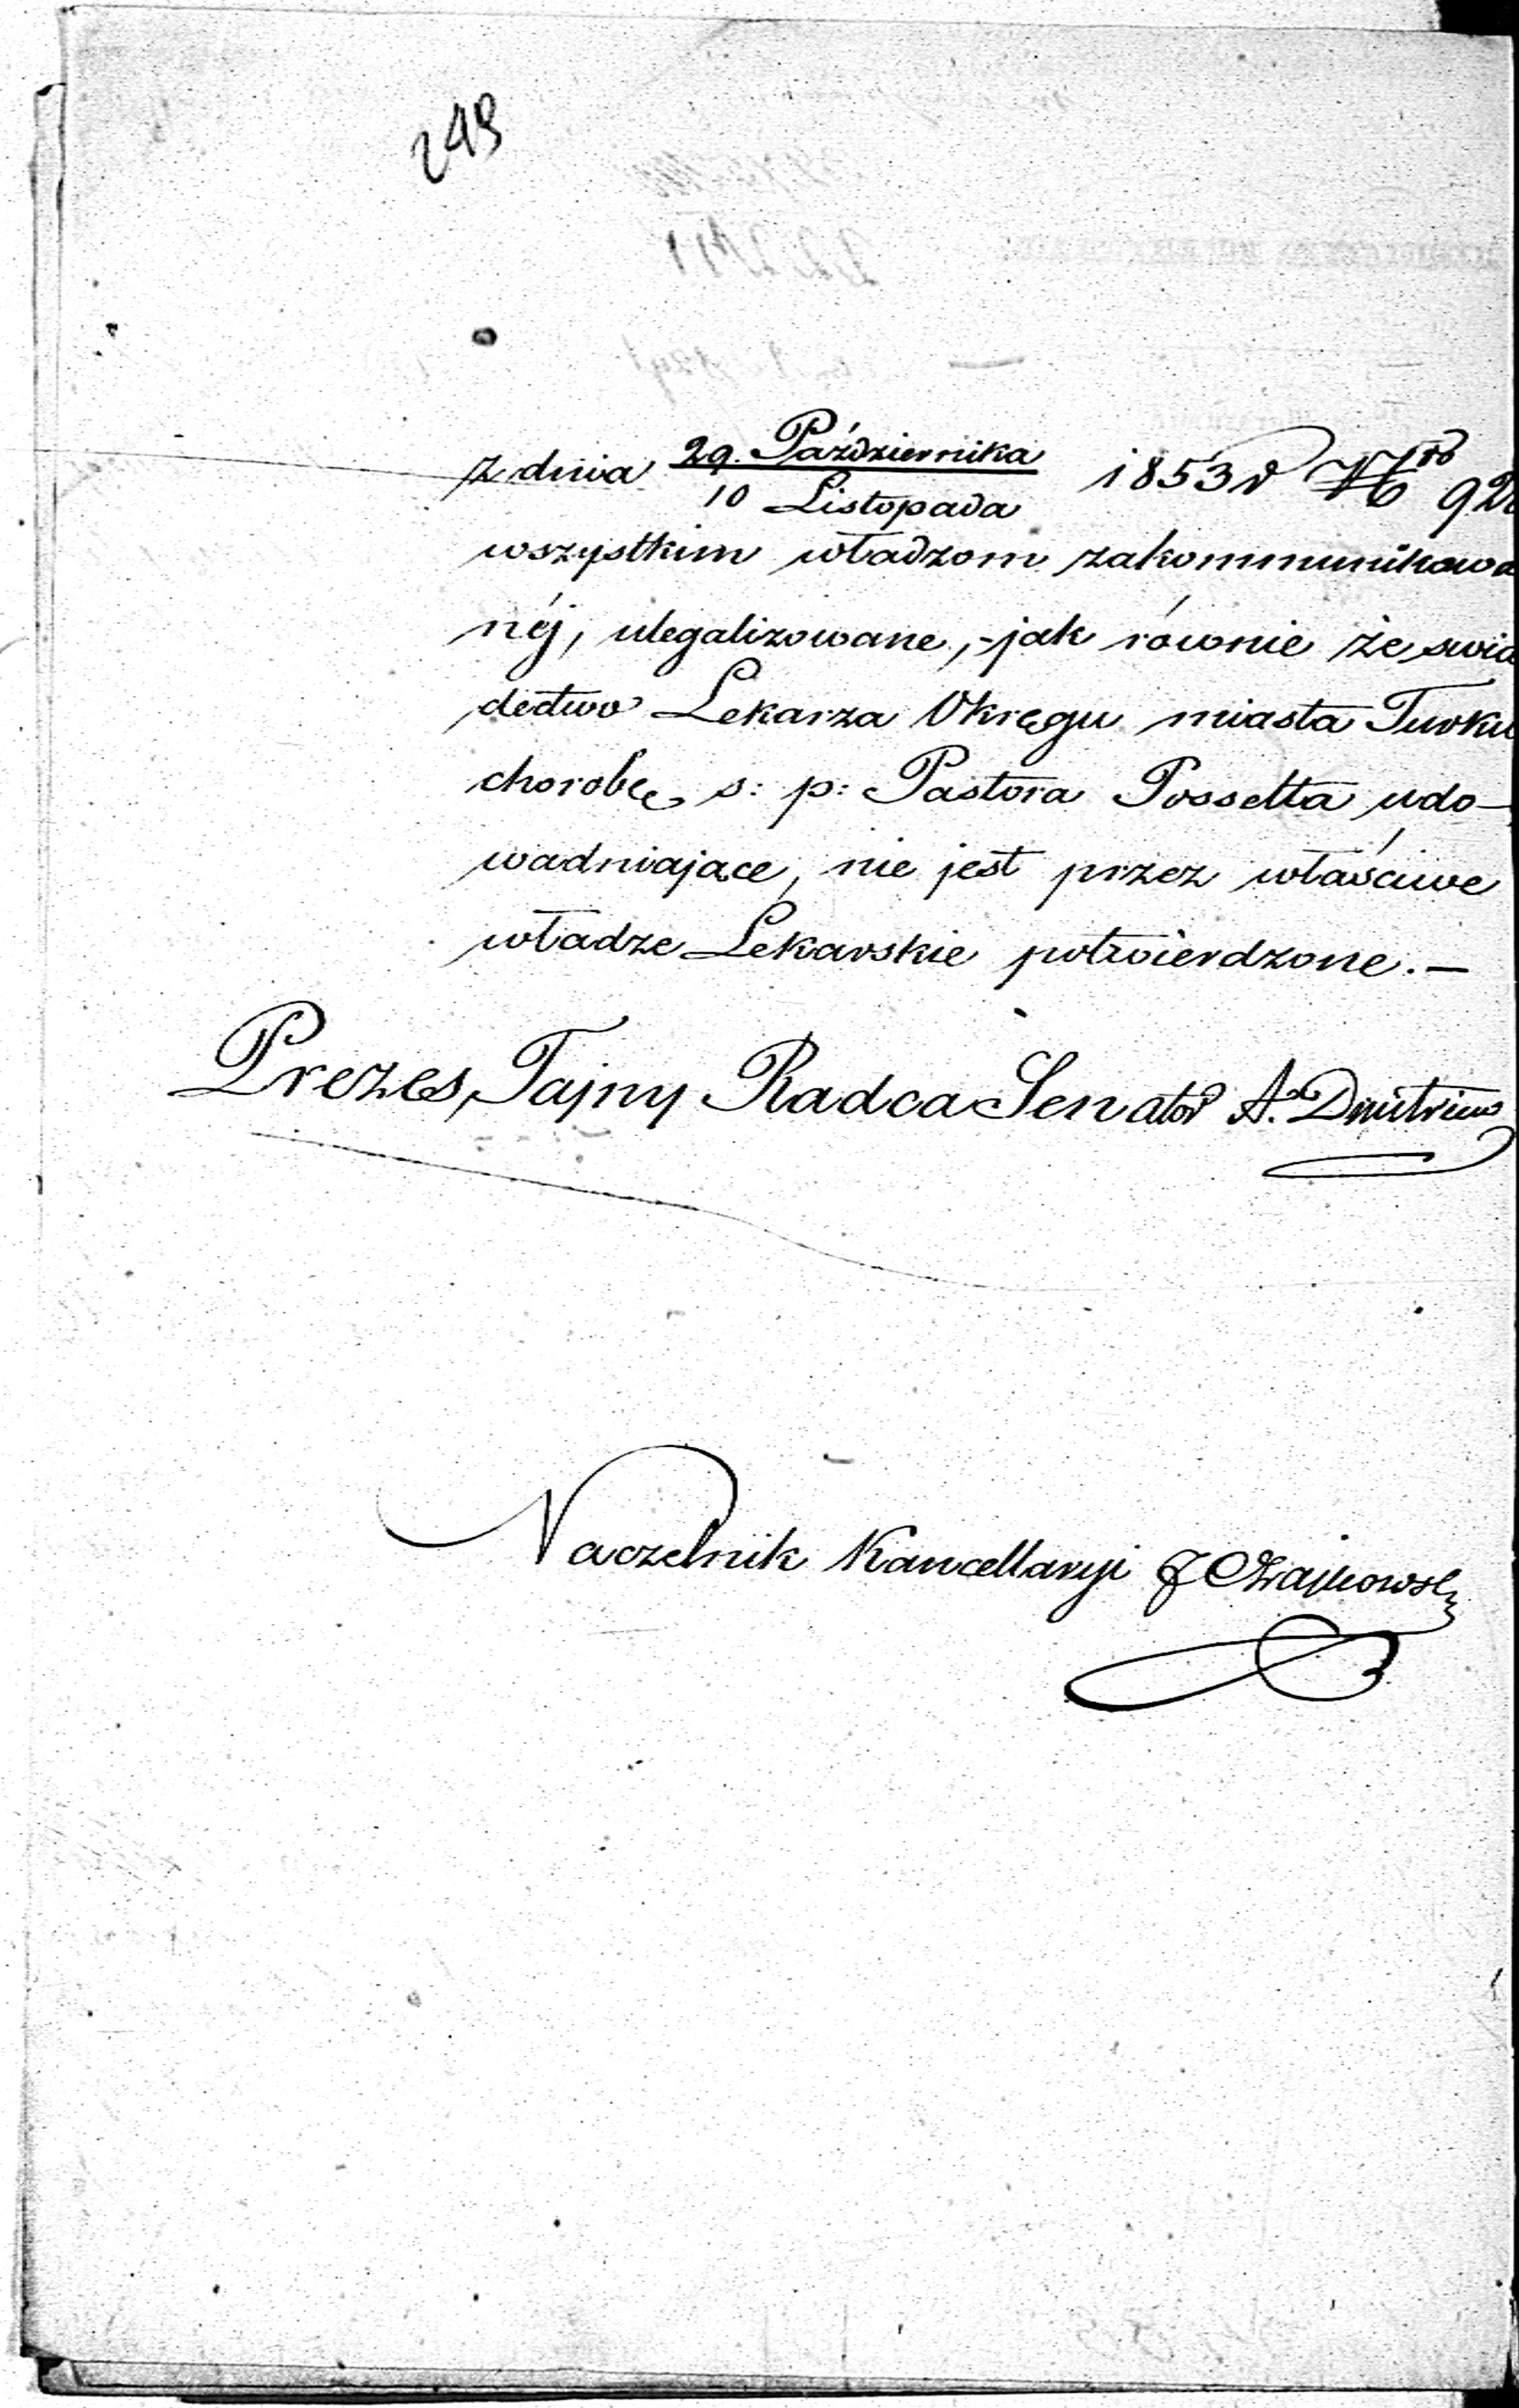 249
z dnia 29. Października / 10 Listopada 1853 r № 92
wszystkim władzom zakommunikowa
néj, ulegalizowane, - jak równie że swia
dectwo Lekarza Okręgu miasta Turku
chorobę s: p: Pastora Posselta udo-
wadniające, nie jest przez właściwe
władze Lekarskie potwierdzone. –
Prezes, Tajny Radca Senator A.
Naczelnik Kancellaryi